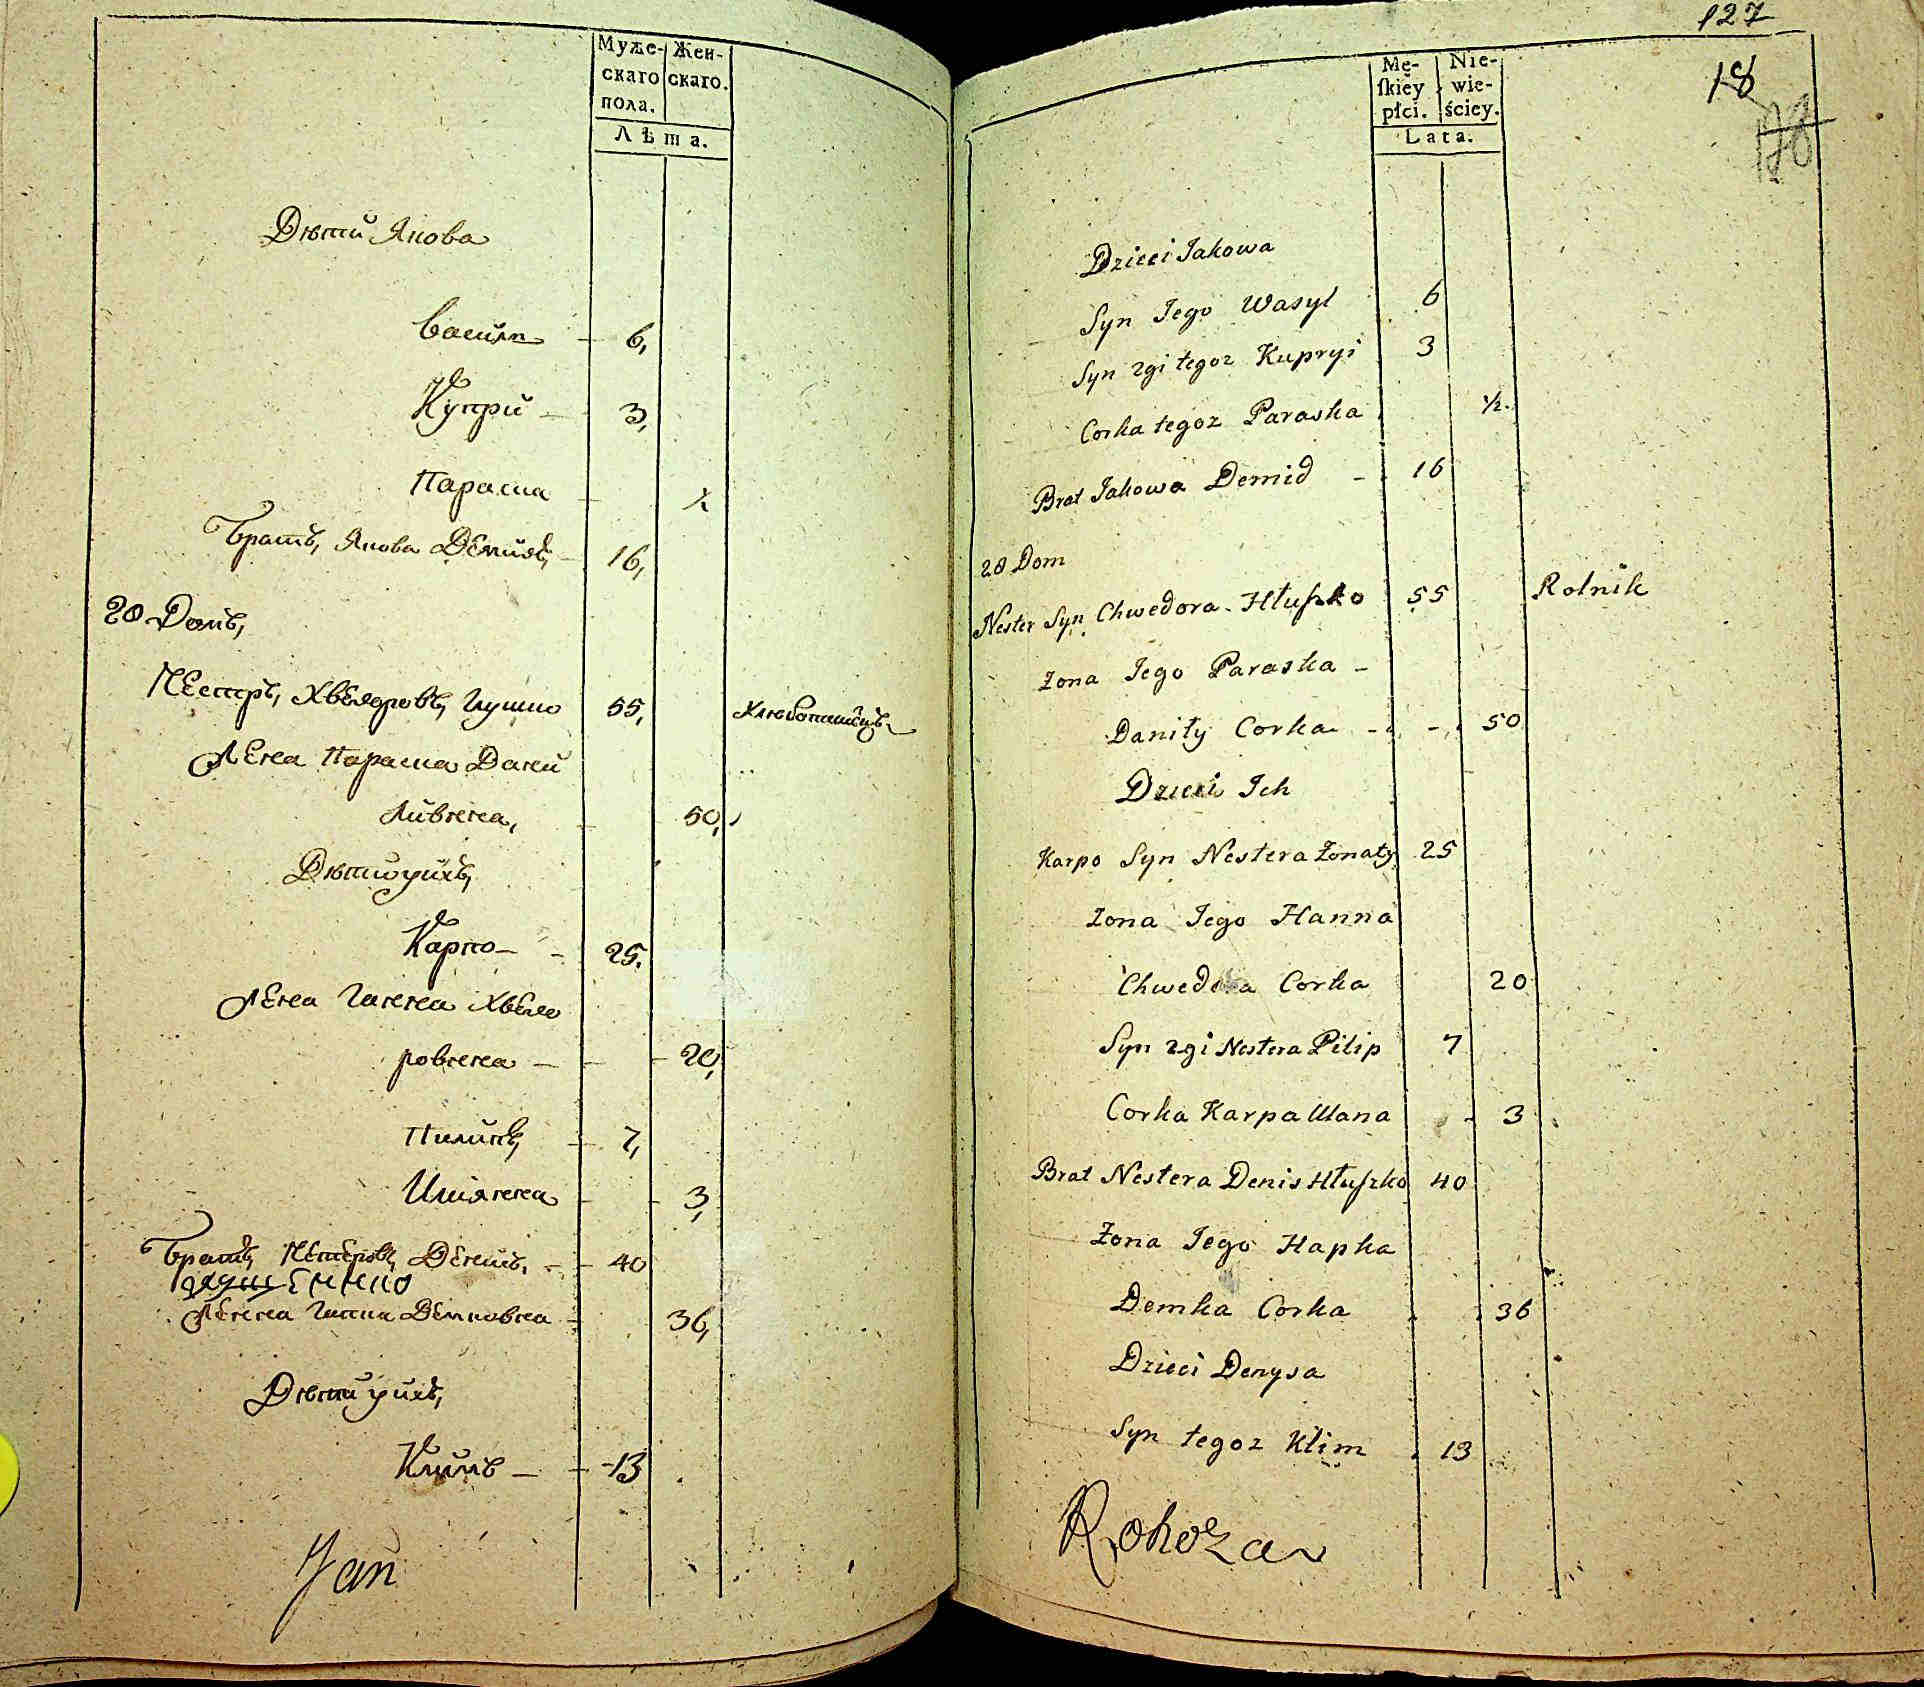 Муже-
скаго
пола.
Жен-
скаго.
Лѣта.
Дѣти Якова
Василь 6,
Купри 3,
Параска ½
Братъ, Якова Демидъ, 16,
28 Домъ,
Нестръ, Хвядровъ, Глушко 55, Хлебопашецъ
Жена Параска Дани
ливгна, 50,
Дѣти ихъ,
Карпо 25.
Жена Ганна Хведо
ровгна 20,
Пилипъ, 7,
Ульянна 3,
Братъ, Нетеровъ, Денисъ, 40
Жена Гапка Демковна 36,
Дѣти ихъ,
Климъ 13
Jan
127
18
178
Mę-
ſkiey
płci.
Nie-
wie-
ściey.
Lata.
Dzieci Jakowa
Syn Jego Wasyl 6
Syn 2gi tegoz Kupryi 3
Corka tegoz Paraska ½.
Brat Jakowa Demid - 16
28 Dom
Nester Syn Chwedora Hłuſzko 55 Rolnik
Zona Jego Paraska -
Daniły Corka - - 50
Dzieci Ich
Karpo Syn Nestera Zonaty 25
Zona Jego Hanna
Chwedora Corka 20
Syn 2gi Nestera Pilip 7
Corka Karpa Ulana 3
Brat Nestera Denis Hłuſzko 40
Zona Jego Hapka
Demka Corka 36
Dzieci Denysa
Syn tegoz Klim 13
Rohoza